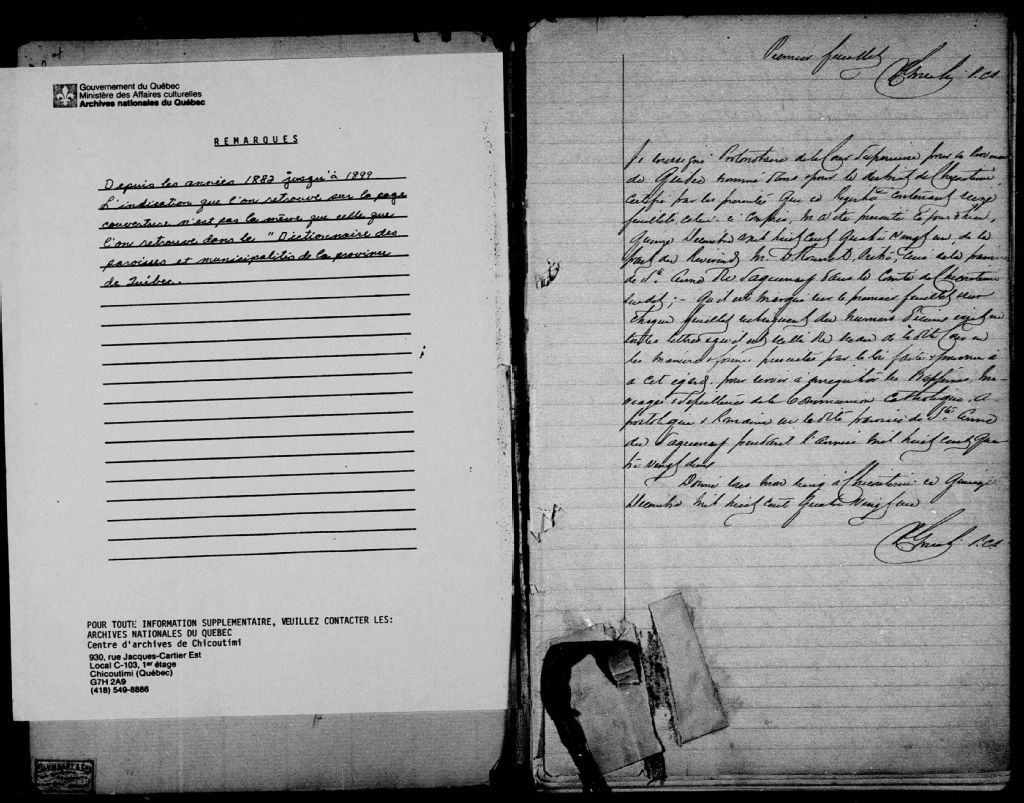 Gouvernement du Québec
Ministère des Affaires culturelles
Archives nationales du Québec
REMARQUES
Depuis les années 1882 jusqu'à 1899
L'indication que l'on retrouve sur la page
couverture n'est pas la même que celle que
l'on retrouve dans le "Dictionnaire des
paroisses et municipalités de la province
de Québec.
POUR TOUTE INFORMATION SUPPLEMENTAIRE, VEUILLEZ CONTACTER LES:
ARCHIVES NATIONALES DU QUEBEC
Centre d'archives de Chicoutimi
930, rue Jacques-Cartier Est
Local C-103, 1er étage
Chicoutimi (Québec)
G7H 2A9
(418) 549-8886
Premier feuillet
P.C.S.
Je soussigné Protonotaire de la Cour Supérieure pour la Province
de Québec nommé dans & pour le district de Chicoutimi,
certifie par les présentes que ce Registre contenant
feuillets, celui-ci compris, m'a été présenté ce jour
Quinze Décembre mil huit cent quatre vingt un, de la
part du Révérend M. Curé de la paroisse
de Ste Anne du Saguenay dans le Comté de Chicoutimi
susdit; - qu'il est marqué sur le premier feuillet & sur
chaque feuillet subséquent du numéro écrit en
toutes lettres & qu'il est scellé du sceau de la dite Cour en
la manière & forme prescrites par la loi faite & pourvue
à cet égard, pour servir à enregistrer les Baptêmes, Ma-
riages & Sépultures de la Communion Catholique, A-
postolique & Romaine en la dite paroisse de Ste Anne
du Saguenay pendant l'année mil huit cent qua-
tre vingt deux
Donné sous mon seing à Chicoutimi ce Quinze
Décembre mil huit cent quatre vingt un
P.C.S.